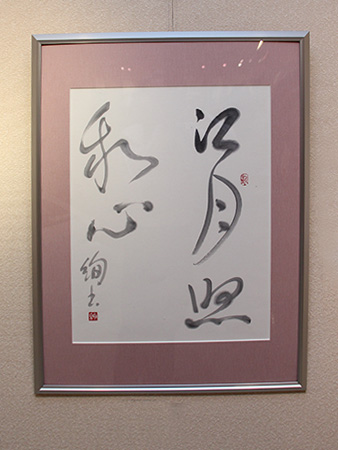 江月照
我心
絢書